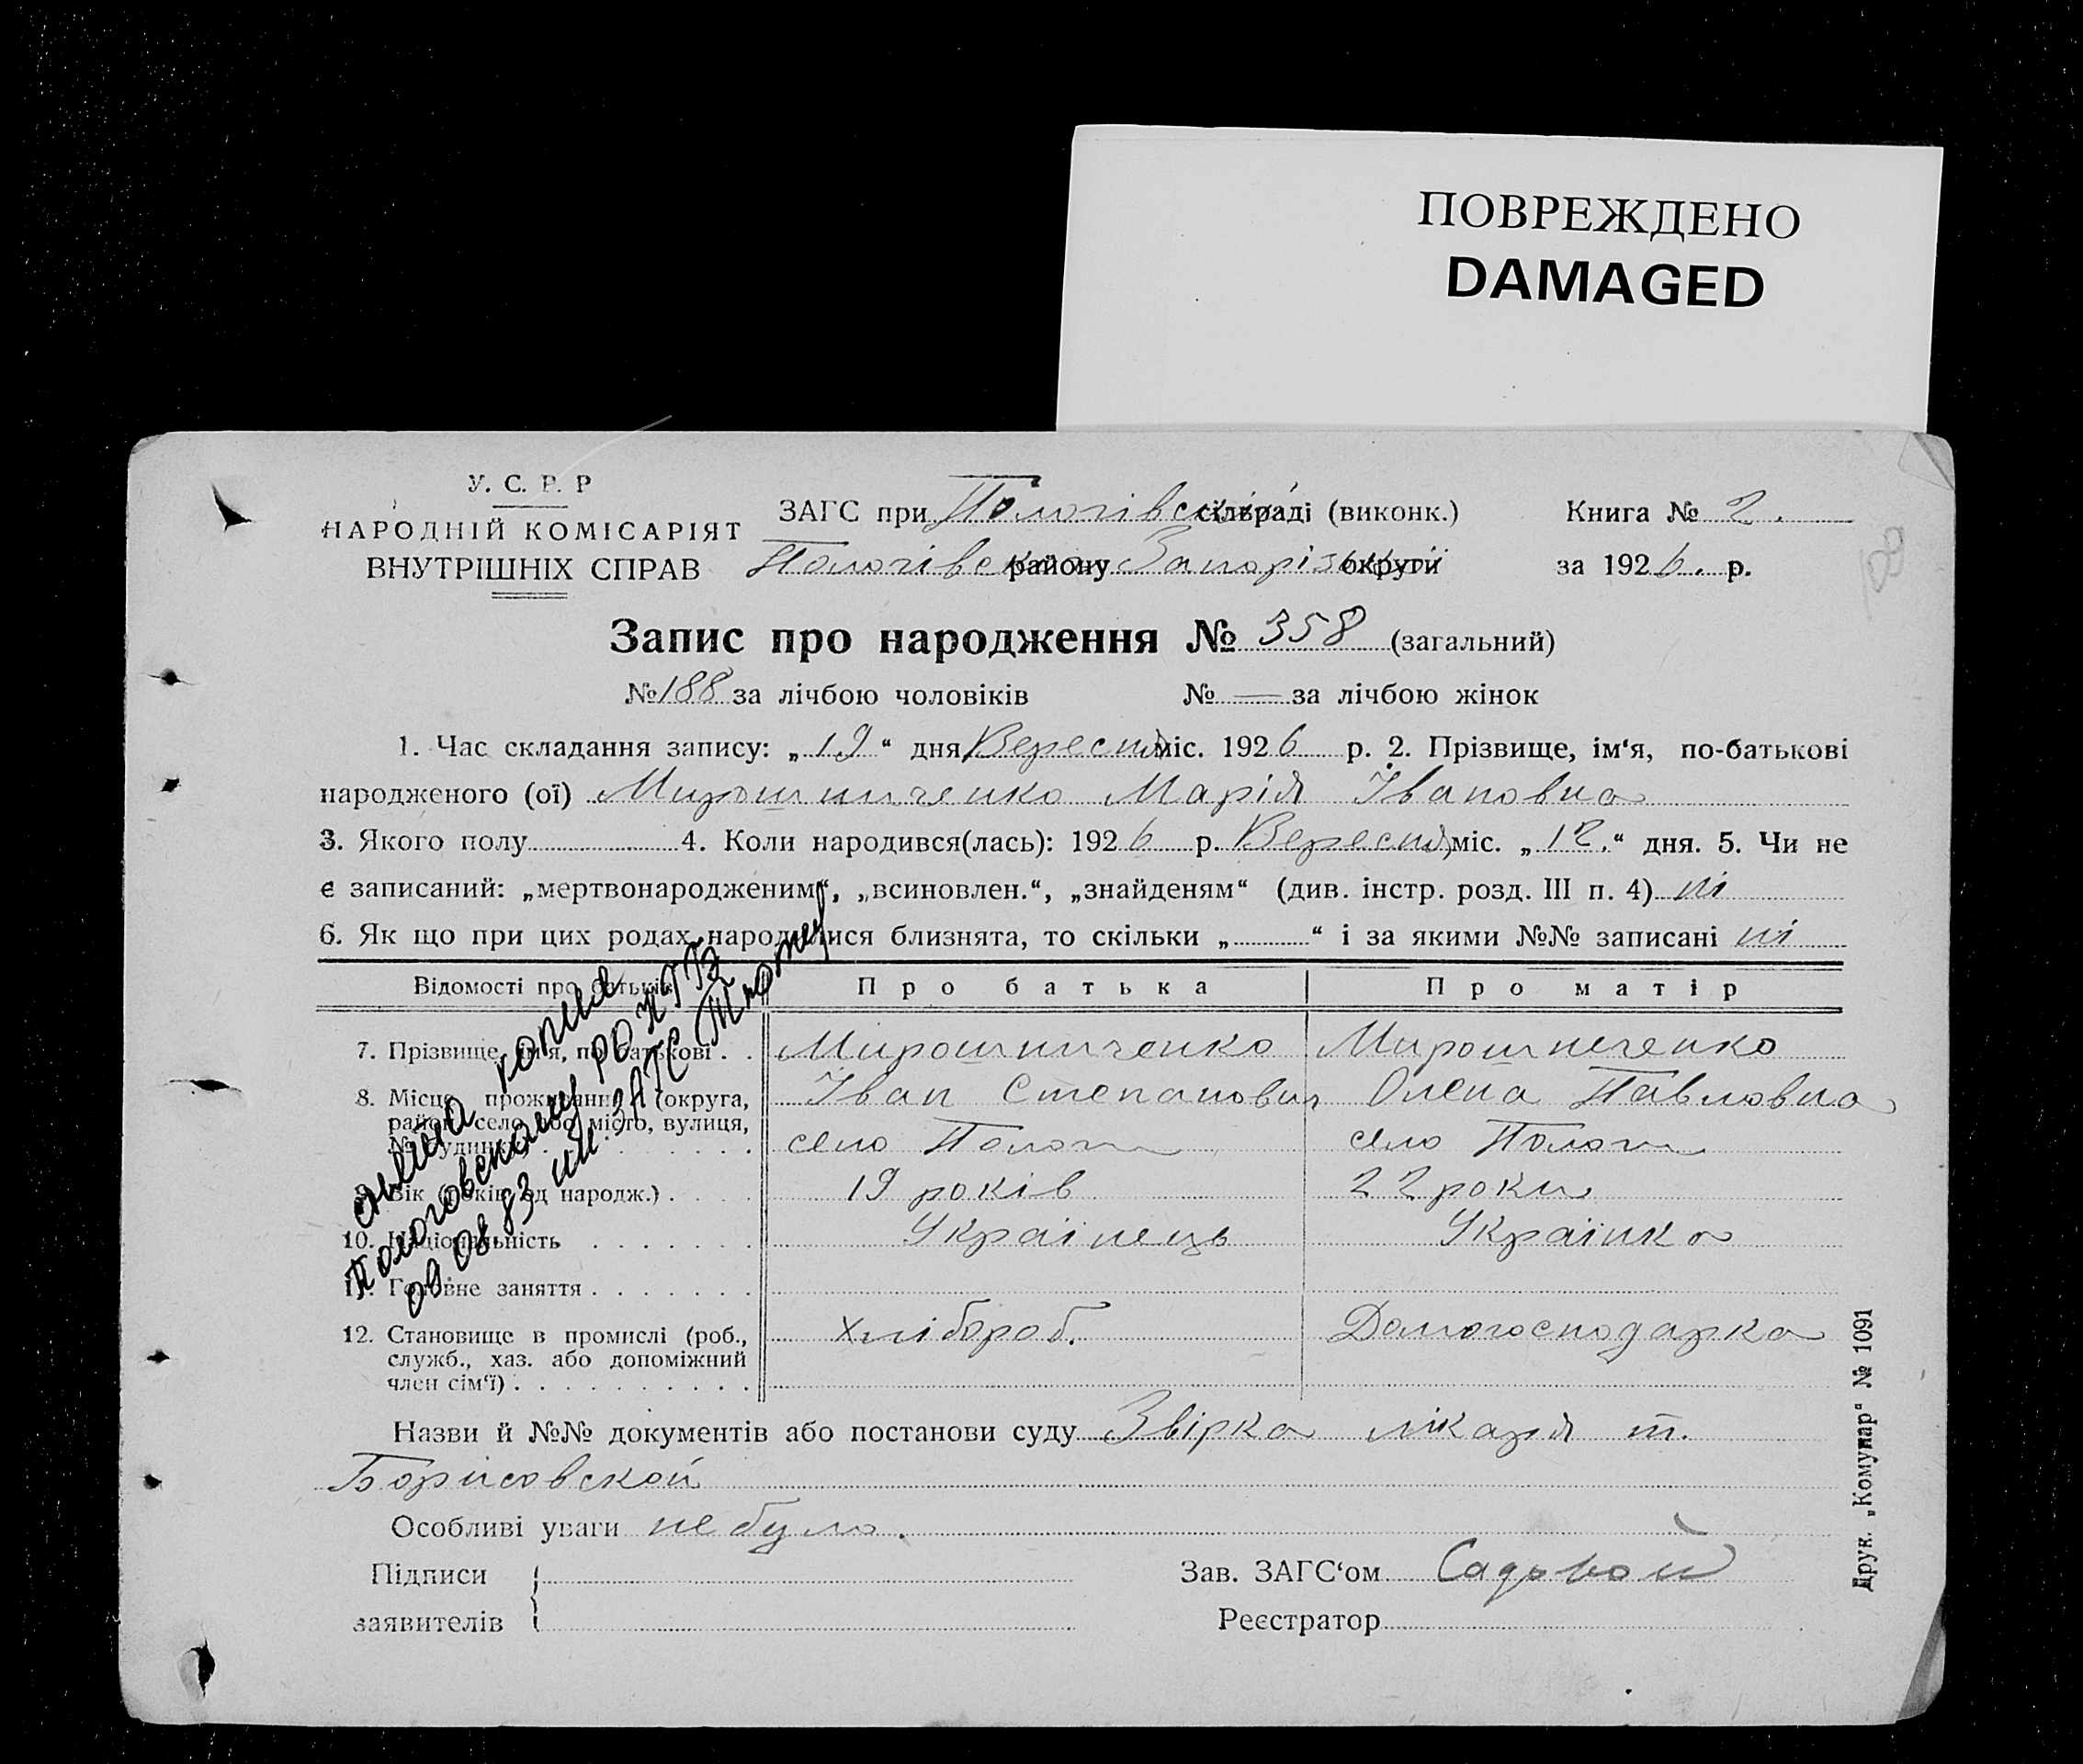 ПОВРЕЖДЕНО
DAMAGED
У. С. Р. Р
НАРОДНІЙ КОМІСАРІЯТ
ВНУТРІШНІХ СПРАВ
ЗАГС при Пологівській сільраді (виконк.)
Пологівського району Запорізької округи
Книга № 2.
за 1926. р.
109
Запис про народження № 358 (загальний)
№ 188 за лічбою чоловіків № — за лічбою жінок
1. Час складання запису: „19“ дня Вересня міс. 1926 р. 2. Прізвище, ім‘я, по-батькові
народженого (ої) Мирошниченко Марія Івановна
3. Якого полу 4. Коли народився(лась): 1926 р. Вересня міс. „12.“ дня. 5. Чи не
є записаний: „мертвонародженим“, „всиновлен.“, „знайденям“ (див. інстр. розд. III п. 4) ні
6. Як що при цих родах народилися близнята, то скільки „ “ і за якими №№ записані ні
Відомості про батьків Про батька Про матір
7. Прізвище, ім‘я, по-батькові . . Мирошниченко Мирошниченко
Іван Степанович Олена Павловна
8. Місце проживання (округа,
район, село або місто, вулиця,
№ будинку) село Пологи село Пологи
9. Вік (років од народж.) . . . . 19 років 22 роки
10. Національність . . . . . . . Українець Українка
11. Головне заняття . . . . . . .
12. Становище в промислі (роб.,
служб., хаз. або допоміжний
член сім‘ї) . . . . . . . . . . хлібороб. Домогосподарка
знята копия
Пологовскому РО ЗАГС
09 08 83 ин. ЗАГС
Назви й №№ документів або постанови суду Звірка лікаря т.
Борисовской
Особливі уваги не було.
Підписи
заявителів
Зав. ЗАГС‘ом Садовой
Реєстратор
Друк. „Комунар“ № 1091